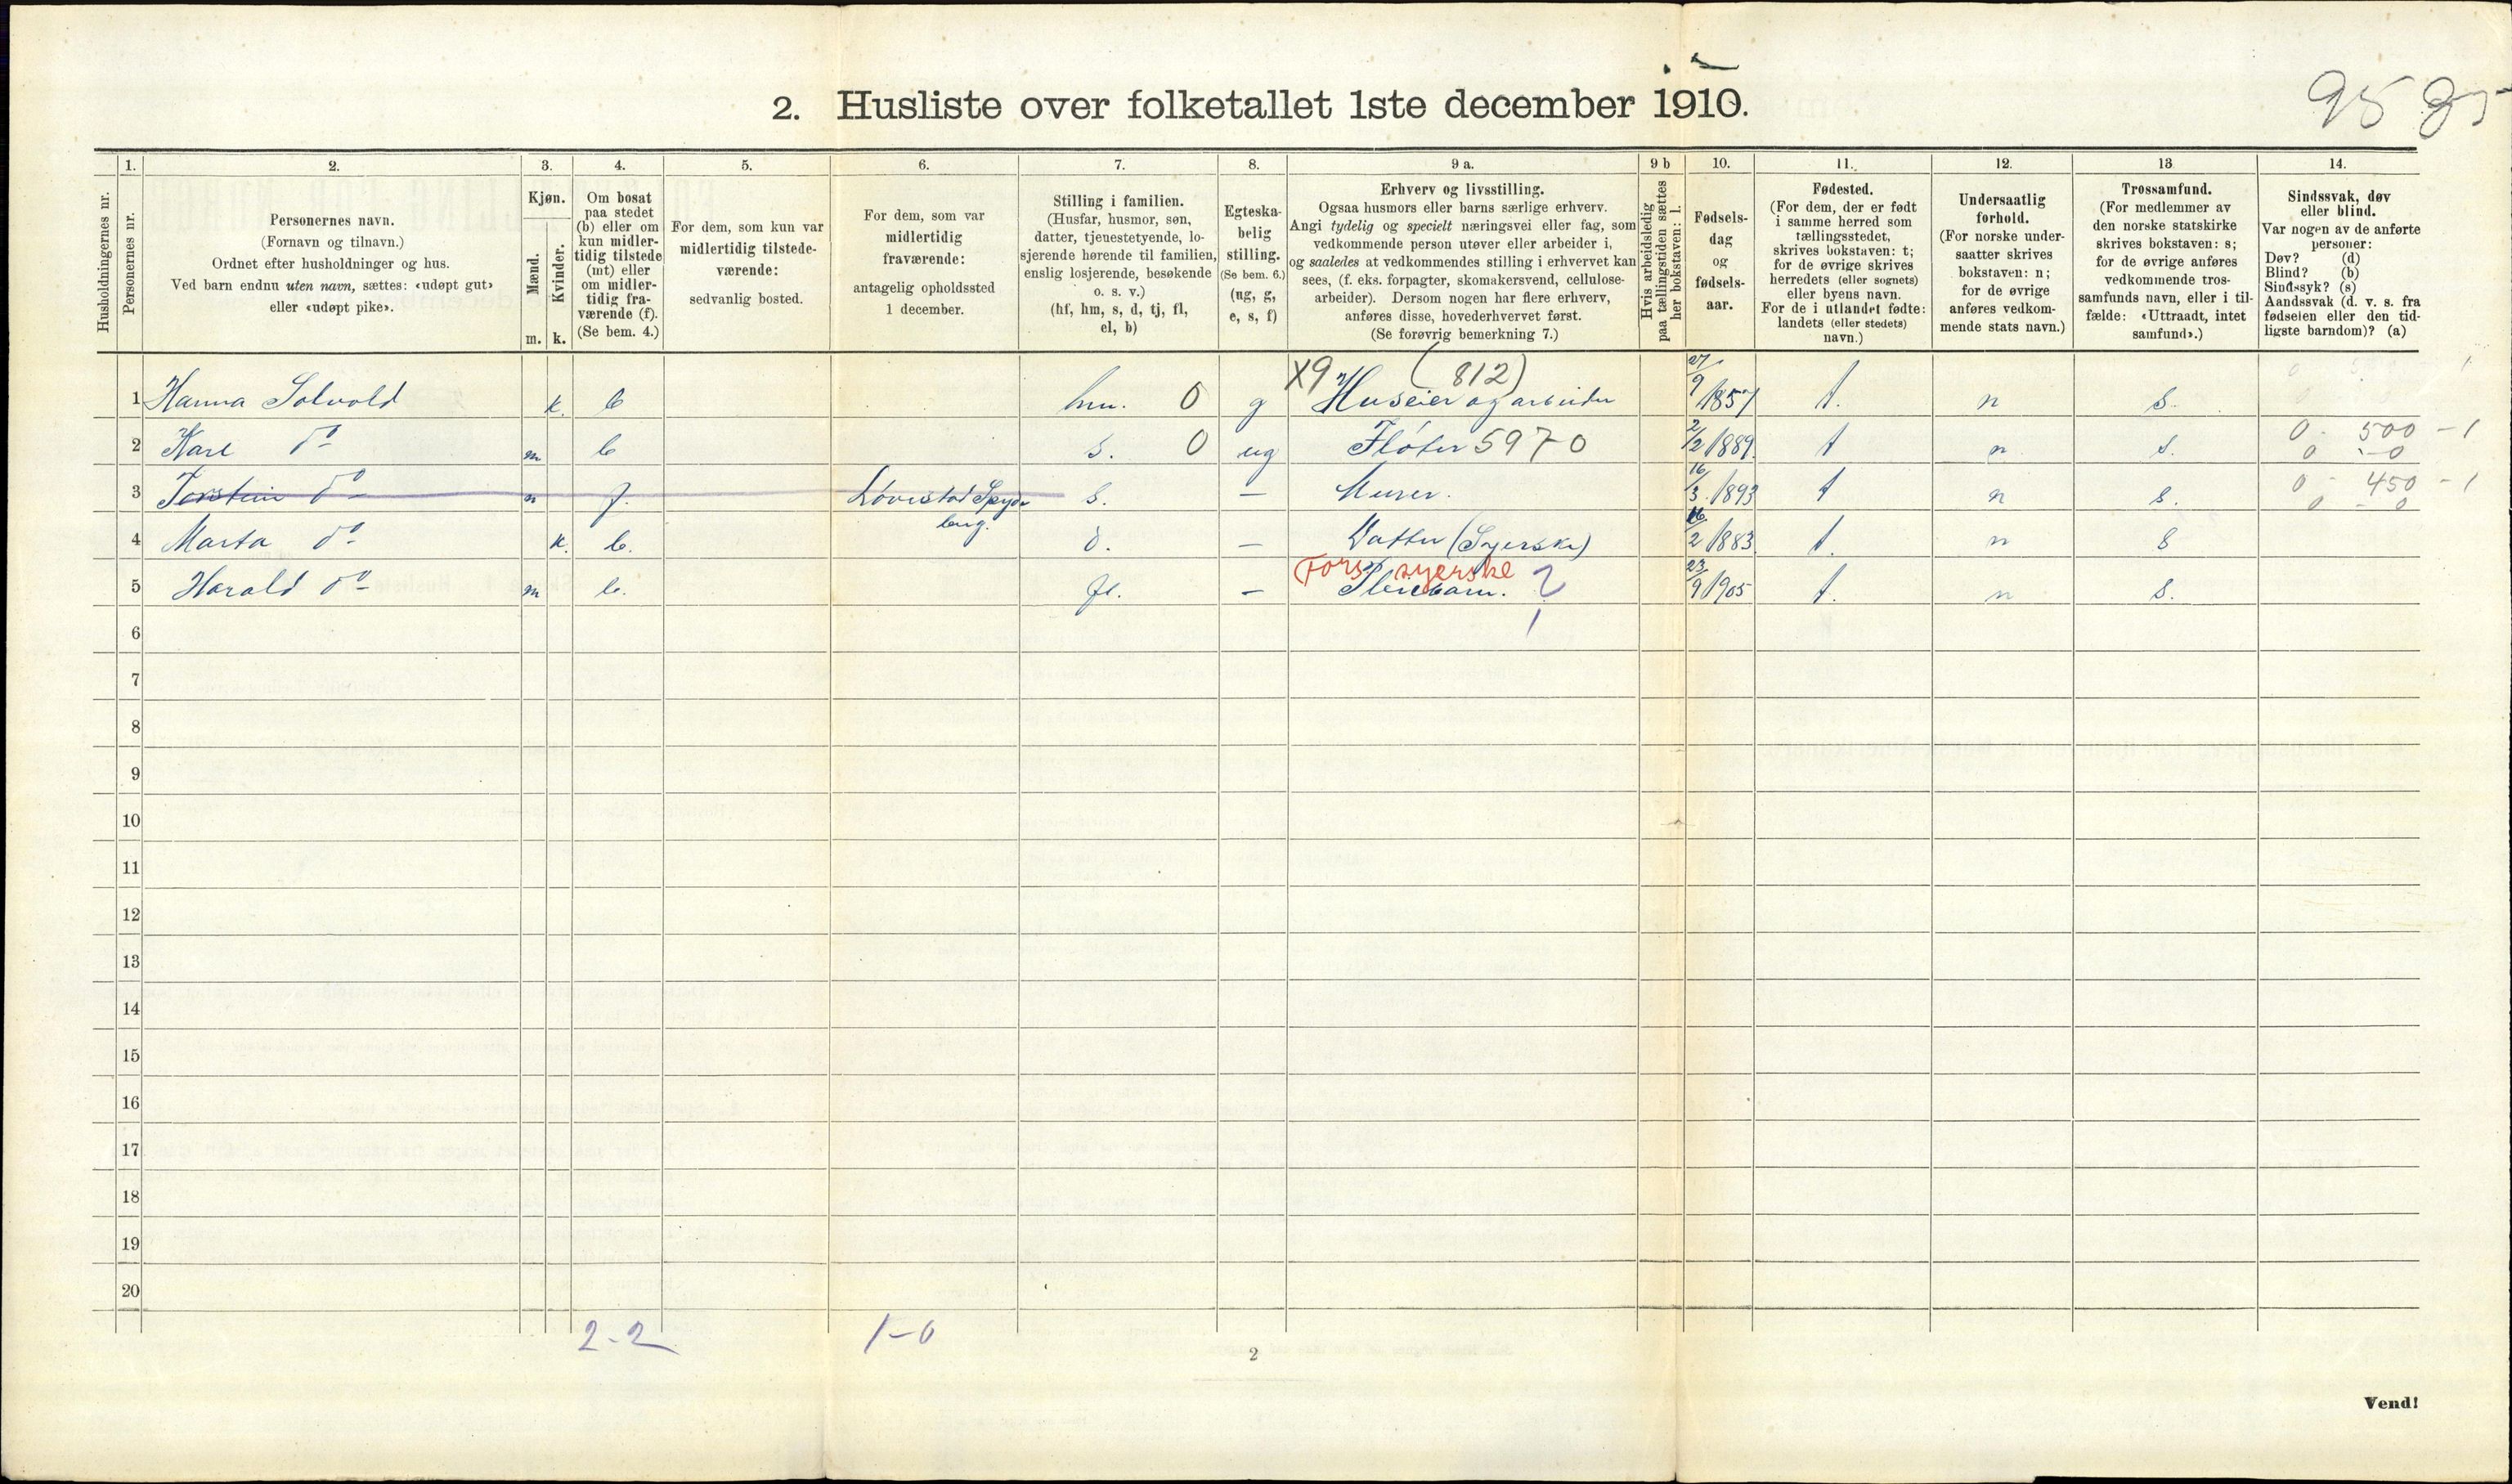 2. Husliste over folketallet 1ste december 1910.
95
1. 2. 3. 4. 5. 6. 7. 8. 9 a. 9 b 10. 11. 12. 13 14.
Husholdningernes nr.
Personernes nr.
Personernes navn.
(Fornavn og tilnavn.)
Ordnet efter husholdninger og hus.
Ved barn endnu uten navn, sættes: «udøpt gut»
eller «udøpt pike».
Kjøn.
Mænd.
Kvinder.
m. k.
Om bosat
paa stedet
(b) eller om
kun midler-
tidig tilstede
(mt) eller
om midler-
tidig fra-
værende (f).
(Se bem. 4.)
For dem, som kun var
midlertidig tilstede-
værende:
sedvanlig bosted.
For dem, som var
midlertidig
fraværende:
antagelig opholdssted
1 december.
Stilling i familien.
(Husfar, husmor, søn,
datter, tjenestetyende, lo-
sjerende hørende til familien,
enslig losjerende, besøkende
o. s. v.)
(hf, hm, s, d, tj, fl,
el, b)
Egteska-
belig
stilling.
(Se bem. 6.)
(ug, g,
e, s, f)
Erhverv og livsstilling.
Ogsaa husmors eller barns særlige erhverv.
Angi tydelig og specielt næringsvei eller fag, som
vedkommende person utøver eller arbeider i,
og saaledes at vedkommendes stilling i erhvervet kan
sees, (f. eks. forpagter, skomakersvend, cellulose-
arbeider). Dersom nogen har flere erhverv,
anføres disse, hovederhvervet først.
(Se forøvrig bemerkning 7.)
Hvis arbeidsledig
paa tællingstiden sættes
her bokstaven: l.
Fødsels-
dag
og
fødsels-
aar.
Fødested.
(For dem, der er født
i samme herred som
tællingsstedet,
skrives bokstaven: t;
for de øvrige skrives
herredets (eller sognets)
eller byens navn.
For de i utlandet fødte:
landets (eller stedets)
navn.)
Undersaatlig
forhold.
(For norske under-
saatter skrives
bokstaven: n;
for de øvrige
anføres vedkom-
mende stats navn.)
Trossamfund.
(For medlemmer av
den norske statskirke
skrives bokstaven: s;
for de øvrige anføres
vedkommende tros-
samfunds navn, eller i til-
fælde: «Uttraadt, intet
samfund».)
Sindssvak, døv
eller blind.
Var nogen av de anførte
personer:
Døv? (d)
Blind? (b)
Sindssyk? (s)
Aandssvak (d. v. s. fra
fødselen eller den tid-
ligste barndom)? (a)
X9 (812)
1 Hanna Solvold k. b hm. 0 g Huseier og arbeider 27/9 1857 t. n s.
2 Karl do m b s. 0 ug Fløter 5970 2/2 1889 t n s. 0 - 500 - 1
0 - 0
3 Torstein do m f. Løvestad Spyde s. — Murer. 16/3 1893 t n s. 0 - 450 - 1
berg. 0 - 0
4 Marta do k. b. d. — Datter (Syerske) 2 1883 t. n s
Fors. syerske
5 Harald do m b. fl. — Pleiebarn. ? 23/9 1905 t. n s.
6
7
8
9
10
11
12
13
14
15
16
17
18
19
20
2-2 1-0
2
Vend!